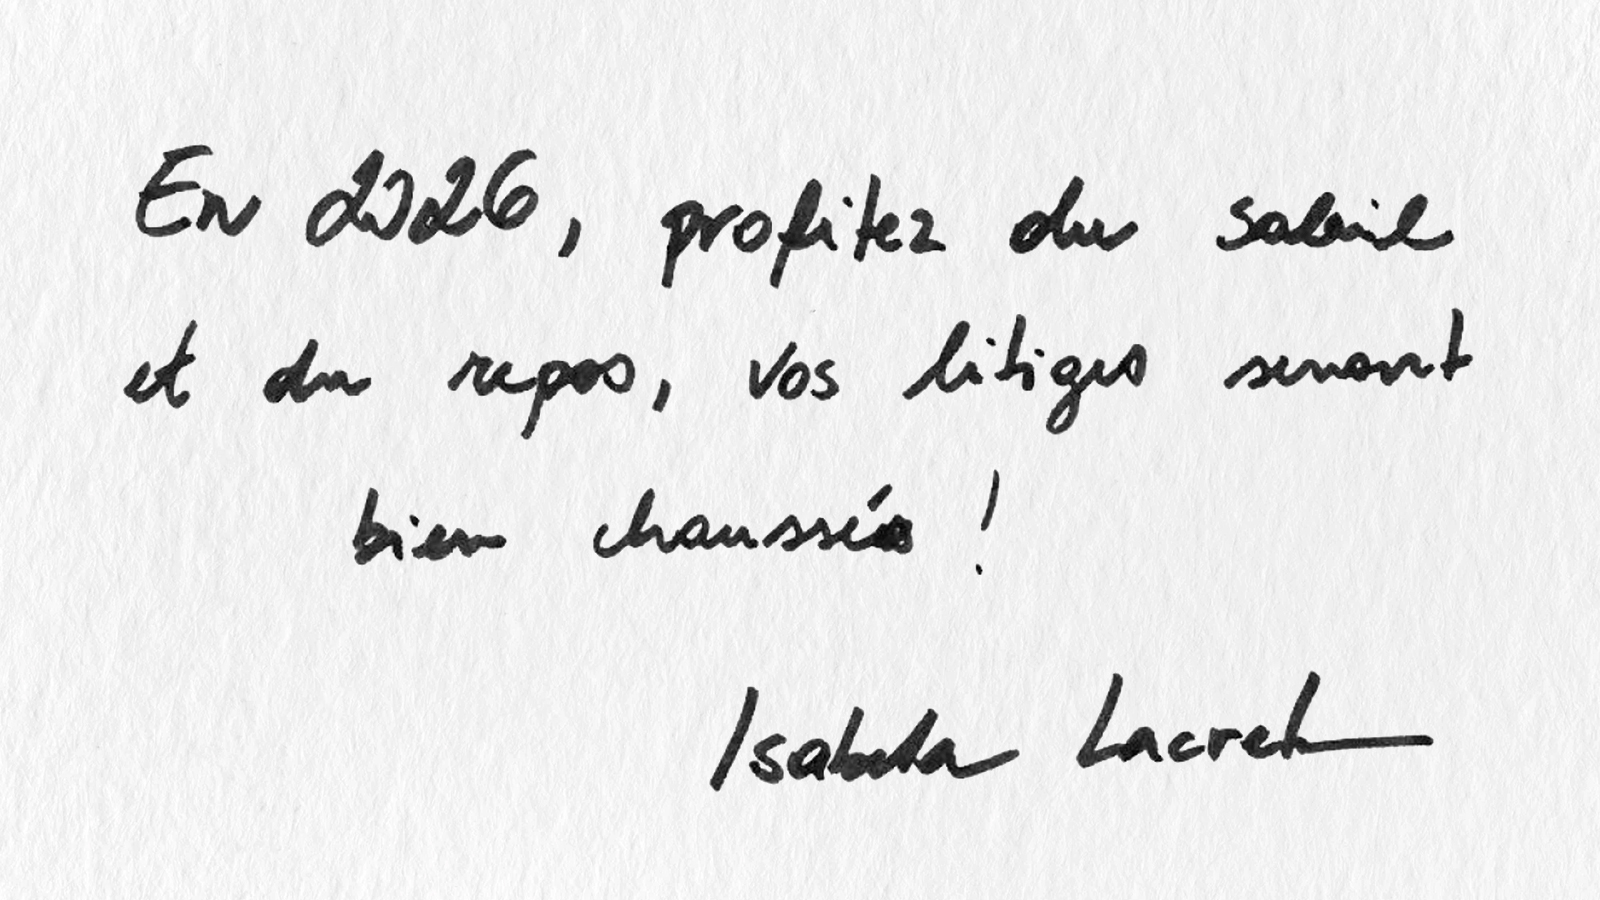 En 2026, profitez du soleil
et du repos, vos litiges seront
bien chaussés !
Isabela Lacret